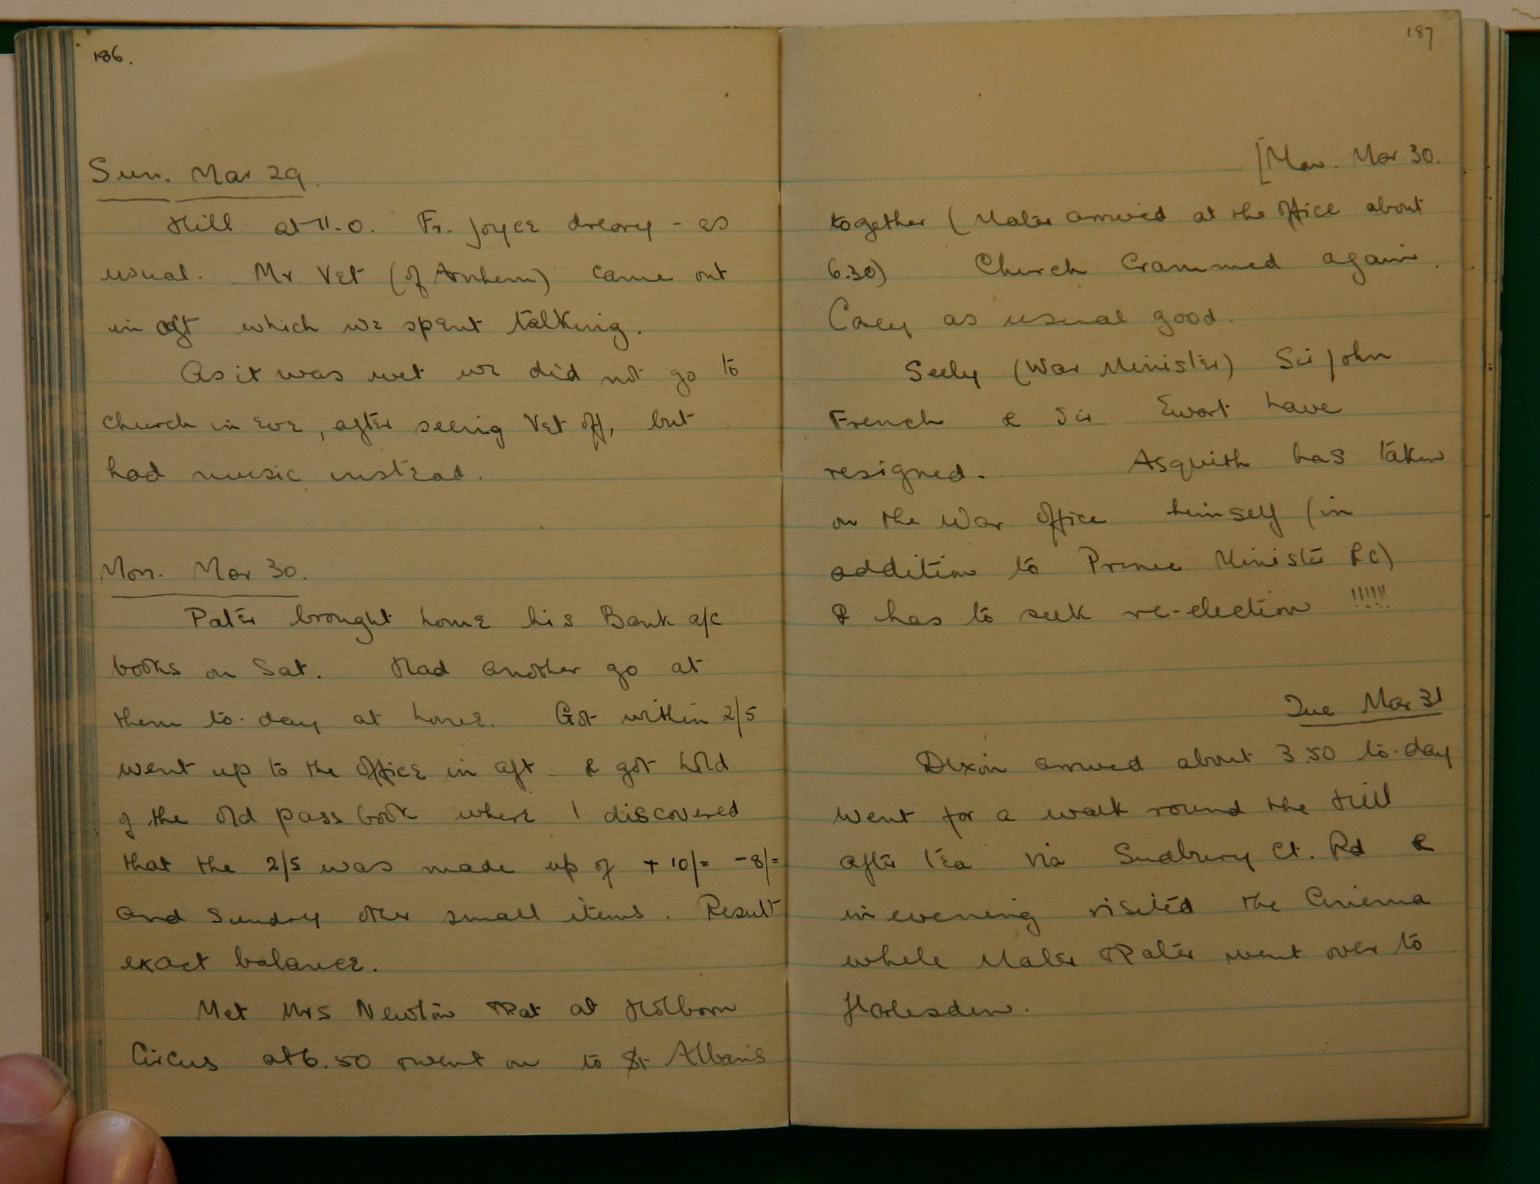 186.
Sun. Mar 29.
Hill at 11.0. Fr. Joyce dreary - as
usual. Mr Vet (of Arnhem) came out
in aft which we spent talking.
As it was wet we did not go to
church in eve, after seeing Vet off, but
had music instead.
Mon. Mar 30.
Pater brought home his Bank a/c
books on Sat. Had another go at
them to-day at home. Got within 2/5
went up to the office in aft & got hold
of the old pass book where I discovered
that the 2/5 was made up of + 10/= - 8/=
and sundry other small items. Result
exact balance.
Met Mrs Newton & Pat at Holborn
Circus at 6.50 & went on to St Albans
187
[Mon. Mar 30.
together (Mater arrived at the office about
6.30) Church crammed again.
Carey as usual good.
Seely (War Minister) Sir John
French & Sir Ewart have
resigned. Asquith has taken
on the War Office himself (in
addition to Prime Minister &c)
& has to seek re-election !!!!!
Tue Mar 31
Dixon arrived about 3.50 to-day
Went for a walk round the Hill
after tea via Sudbury Ct. Rd &
in evening visited the Cinema
while Mater & Pater went over to
Harlesden.